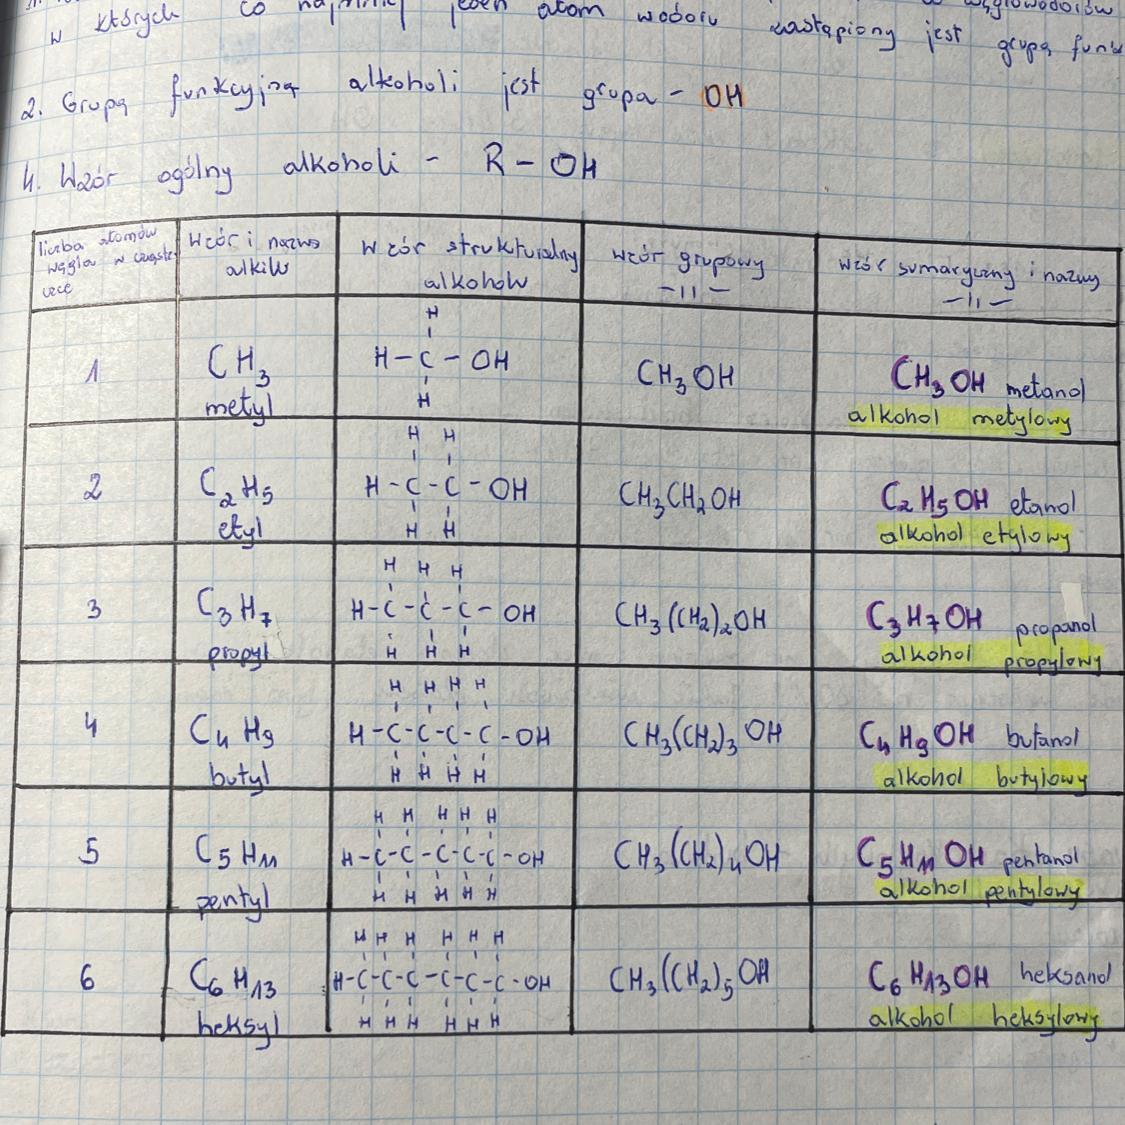 w których co najmniej jeden atom wodoru zastąpiony jest grupą funk
2. Grupą funkcyjną alkoholi jest grupa - OH
4. Wzór ogólny alkoholi - R - OH
liczba atomów węgla w cząstecz
wzór i nazwa alkilu
wzór strukturalny alkoholów
wzór grupowy -||-
wzór sumaryczny i nazwy -||-
1
CH₃
metyl
H
H-C-OH
H
CH₃OH
CH₃OH metanol
alkohol metylowy
2
C₂H₅
etyl
H H
H-C-C-OH
H H
CH₃CH₂OH
C₂H₅OH etanol
alkohol etylowy
3
C₃H₇
propyl
H H H
H-C-C-C-OH
H H H
CH₃(CH₂)₂OH
C₃H₇OH propanol
alkohol propylowy
4
C₄H₉
butyl
H H H H
H-C-C-C-C-OH
H H H H
CH₃(CH₂)₃OH
C₄H₉OH butanol
alkohol butylowy
5
C₅H₁₁
pentyl
H H H H H
H-C-C-C-C-C-OH
H H H H H
CH₃(CH₂)₄OH
C₅H₁₁OH pentanol
alkohol pentylowy
6
C₆H₁₃
heksyl
H H H H H H
H-C-C-C-C-C-C-OH
H H H H H H
CH₃(CH₂)₅OH
C₆H₁₃OH heksanol
alkohol heksylowy